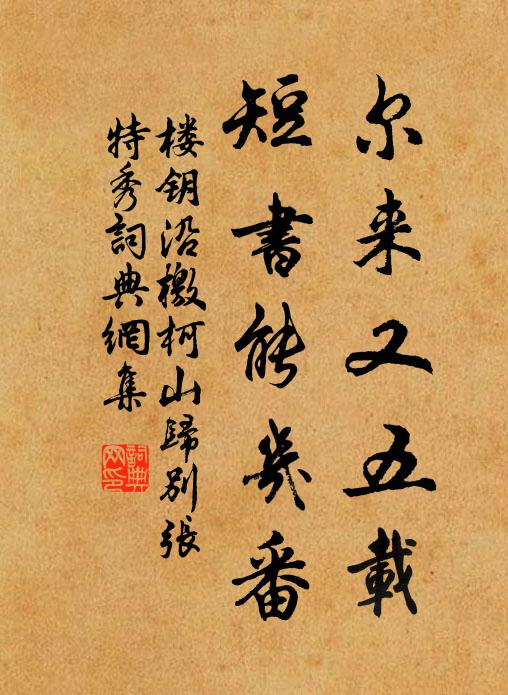 尔来又五载
短書能幾番
楼钥沿檄柯山歸别張
特秀詞典網集
詞典
网印